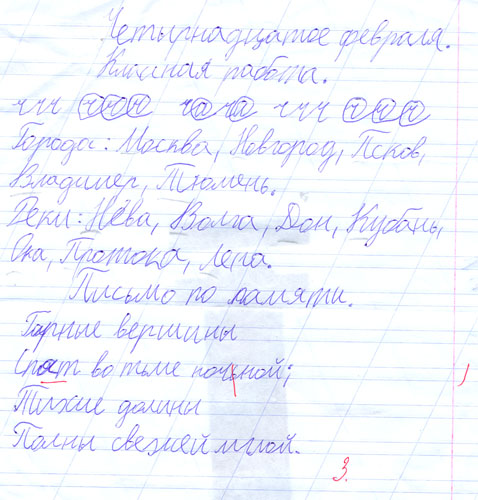 Четырнадцатое февраля.
Классная работа.
ччч ччч чача ччч ччч
Города: Москва, Новгород, Псков,
Владимер, Тюмень.
Реки: Нева, Волга, Дон, Кубань,
Ока, Протока, Лена.
Письмо по памяти.
Горные вершины
Спат во тьме почьной;
Тихие долины
Полны свежей мглой.
3.